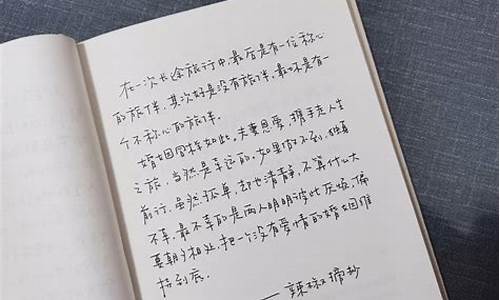 在一次长途旅行中,最好是有一位称心
的旅伴,其次好是没有旅伴,最坏是有一
个不称心的旅伴。
婚姻同样如此。夫妻恩爱,携手走人生
之旅,当然是幸运的。如果做不到,独自
前行,虽然孤单,却也清静,不算什么大
不幸。最不幸的是两人明明彼此厌烦,偏
要朝夕相处,把一个没有爱情的婚姻维
持到底。
—— 摘抄